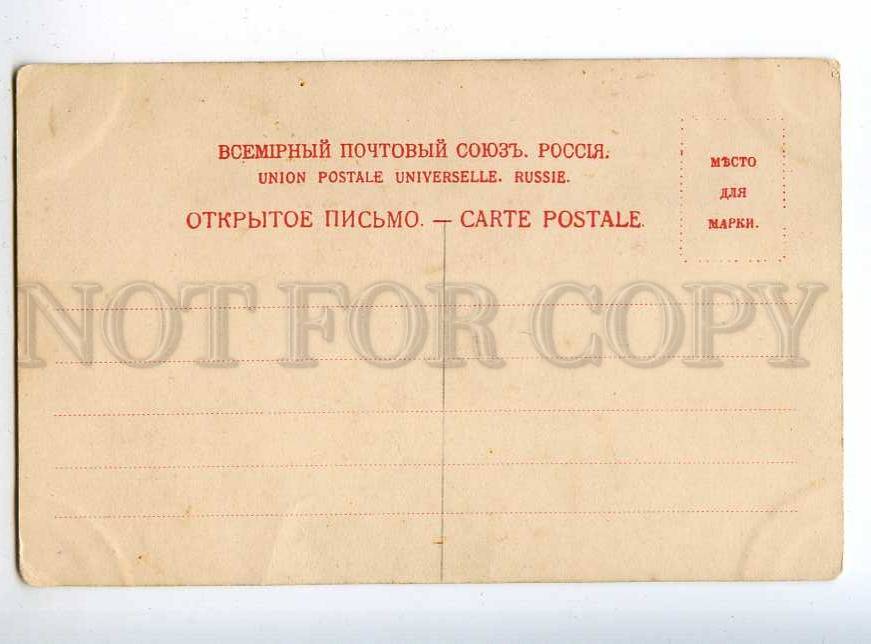 ВСЕМІРНЫЙ ПОЧТОВЫЙ СОЮЗЪ. РОССІЯ.
UNION POSTALE UNIVERSELLE. RUSSIE.
ОТКРЫТОЕ ПИСЬМО. — CARTE POSTALE.
МѢСТО
ДЛЯ
МАРКИ.
NOT FOR COPY